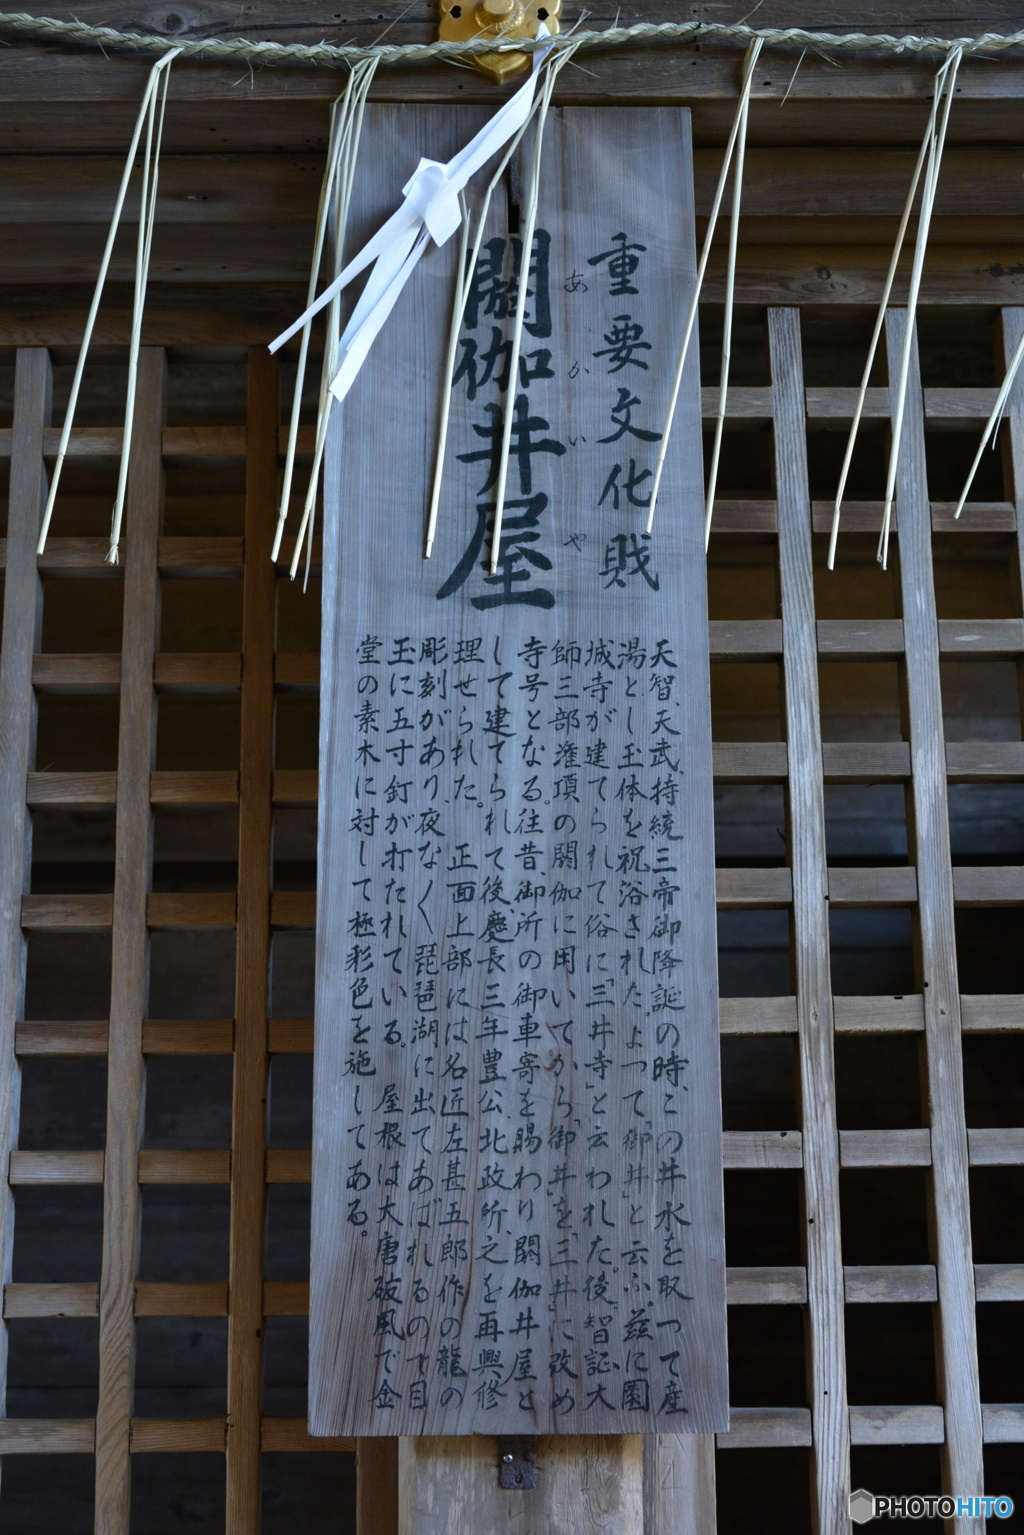 重要文化財
閼伽井屋
あかいや
天智、天武、持統三帝御降誕の時、この井水を取つて産
湯とし玉体を祝浴されたよつて「御井」と云ふ。茲に園
城寺が建てられて俗に「三井寺」と云われた。後、智証大
師三部潅頂の閼伽に用いてから「御井」を「三井」に改め
寺号となる。往昔、御所の御車寄を賜わり閼伽井屋と
して建てられて後、慶長三年豊公、北政所、之を再興、修
理せられた。正面上部には名匠左甚五郎作の龍の
彫刻があり、夜な〱琵琶湖に出てあばれるので目
玉に五寸釘が打たれている。屋根は大唐破風で金
堂の素木に対して極彩色を施してある。
PHOTOHITO